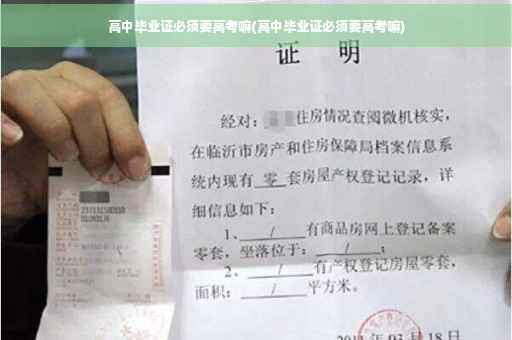 高中毕业证必须要高考嘛(高中毕业证必须要高考嘛)
证 明
经对：住房情况查阅微机核实，
在临沂市房产和住房保障局档案信息系
统内现有 零 套房屋产权登记记录，详
细信息如下：
1、 / 有商品房网上登记备案
零套，坐落位于： / ；
2、 / 有产权登记房屋零套，
面积： / 平方米。